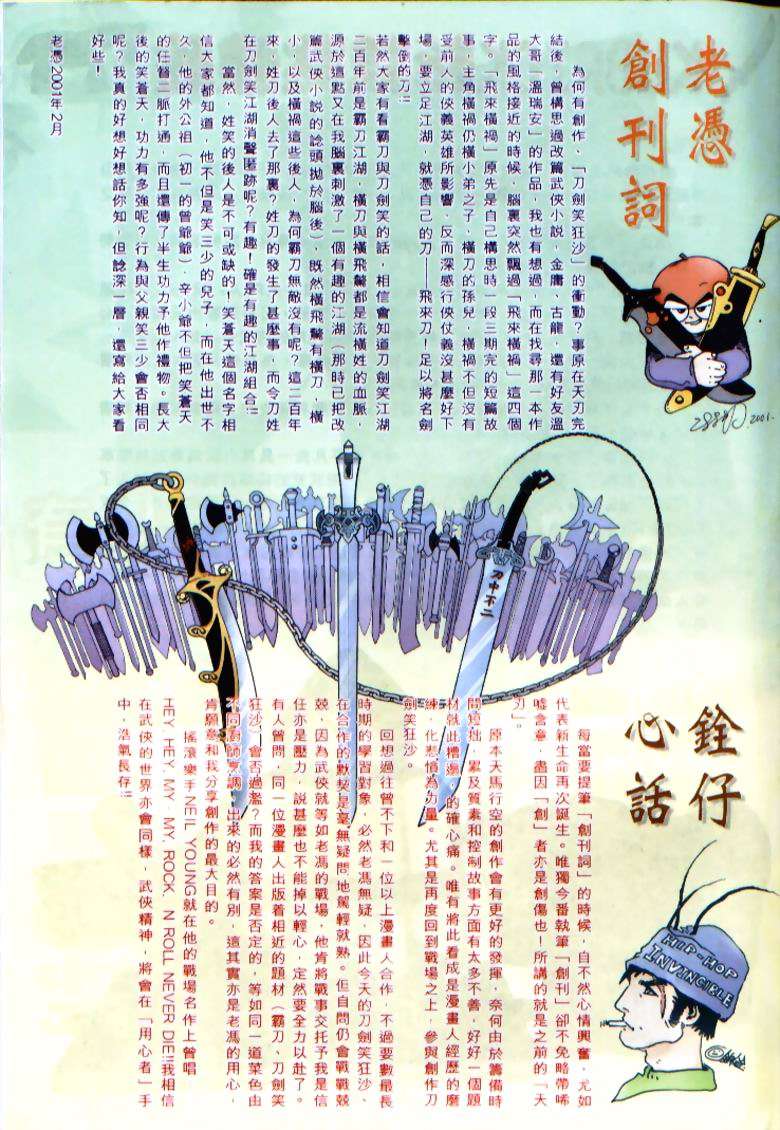 老憑
創刊詞
為何有創作，「刀劍笑狂沙」的衝動？事原在天刃完
結後，曾構思過改篇武俠小說，金庸、古龍，還有好友溫
大哥「溫瑞安」的作品，我也有想過，而在找尋那一本作
品的風格接近的時候，腦裏突然飄過「飛來橫禍」這四個
字。「飛來橫禍」原先是自己構思時一段三期完的短篇故
事，主角橫禍仍橫小弟之子，橫刀的孫兒，橫禍不但沒有
受前人的俠義英雄所影響，反而深感行俠仗義沒甚麼好下
場，要立足江湖，就憑自己的刀——飛來刀！足以將名劍
擊倒的刀!!
若然大家有看霸刀與刀劍笑的話，相信會知道刀劍笑江湖
二百年前是霸刀江湖，橫刀與橫飛鷲都是流橫姓的血脈，
源於這點又在我腦裏刺激了一個有趣的江湖（那時已把改
篇武俠小說的諗頭拋於腦後），既然橫飛鷲有橫刀，橫
小，以及橫禍這些後人，為何霸刀無敵沒有呢？這二百年
來，姓刀後人去了那裏？姓刀的發生了甚麼事，而令刀姓
在刀劍笑江湖消聲匿跡呢？有趣！確是有趣的江湖組合!!
當然，姓笑的後人是不可或缺的！笑蒼天這個名字相
信大家都知道，他不但是笑三少的兒子，而在他出世不
久，他的外公祖（初一的曾爺爺），辛小爺不但把笑蒼天
的任督二脈打通，而且還傳了半生功力予他作禮物。長大
後的笑蒼天，功力有多強呢？行為與父親笑三少會否相同
呢？我真的好想好想話你知，但諗深一層，還寫給大家看
好些！
老憑2001年2月
2001.
刀中不二
銓仔
心話
每當要提筆「創刊詞」的時候，自不然心情興奮，尤如
代表新生命再次誕生。唯獨今番執筆「創刊」卻不免略帶唏
噓含意，盡因「創」者亦是創傷也！所講的就是之前的「天
刃」。
原本天馬行空的創作會有更好的發揮，奈何由於籌備時
間短拙，累及質素和控制故事方面有太多不善，好好一個題
材就此糟邊，的確心痛。唯有將此看成是漫畫人經歷的磨
練，化悲憤為力量。尤其是再度回到戰場之上，參與創作刀
劍笑狂沙。
回想過往曾不下和一位以上漫畫人合作，不過要數最長
時期的學習對象，必然老馮無疑，因此今天的刀劍笑狂沙，
在合作的默契是毫無疑問地駕輕就熟。但自問仍會戰戰兢
兢，因為武俠就等如老馮的戰場，他肯將戰事交托予我是信
任亦是壓力，說甚麼也不能掉以輕心，定然要全力以赴了。
有人曾問，同一位漫畫人出版着相近的題材（霸刀、刀劍笑
狂沙）會否過濫？而我的答案是否定的，等如同一道菜色由
不同廚師烹調，出來的必然有別，這其實亦是老馮的用心，
肯願意和我分享創作的最大目的。
搖滾樂手NEIL YOUNG就在他的戰場名作上曾唱
HEY. HEY. MY. MY. ROCK. N ROLL NEVER DIE!!!我相信
在武俠的世界亦會同樣，武俠精神，將會在「用心者」手
中，浩氣長存!!!
HIP-HOP
INVINCIBLE